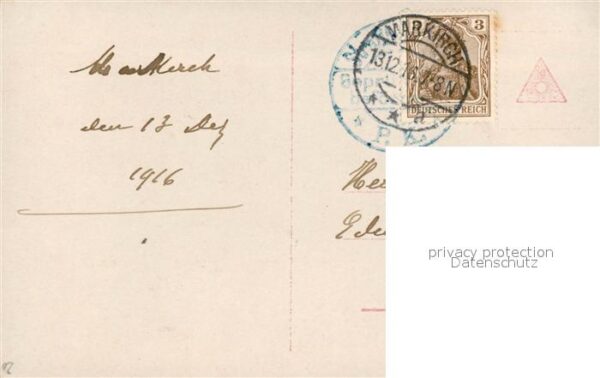 Markirch
den 13 Dez
1916
3
MARKIRCH
13.12.16.7-8.N
DEUTSCHES REICH
P. K.
privacy protection
Datenschutz